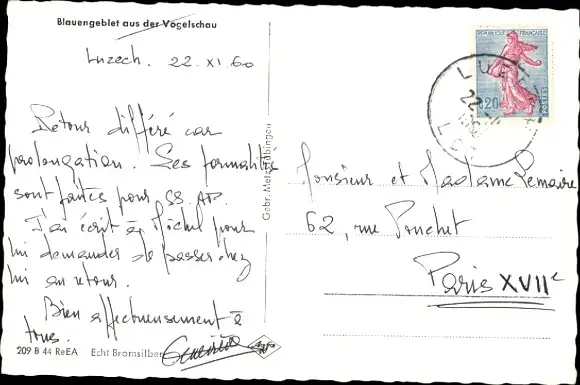 Blauengebiet aus der Vogelschau
Luzech. 22. XI. 60
Retour différé car
prolongation. Les formalités
sont faites pour SS. AP.
J'ai écrit à Michel pour
lui demander de passer chez
lui au retour.
Bien affectueusement à
tous.
209 B 44 ReEA Echt Bromsilber
Gebr. Metz Tübingen
REPUBLIQUE FRANÇAISE
0,20
POSTES
LUZECH
22
LOT
Monsieur et Madame Lemaire
62, rue Pouchet
Paris XVIIe